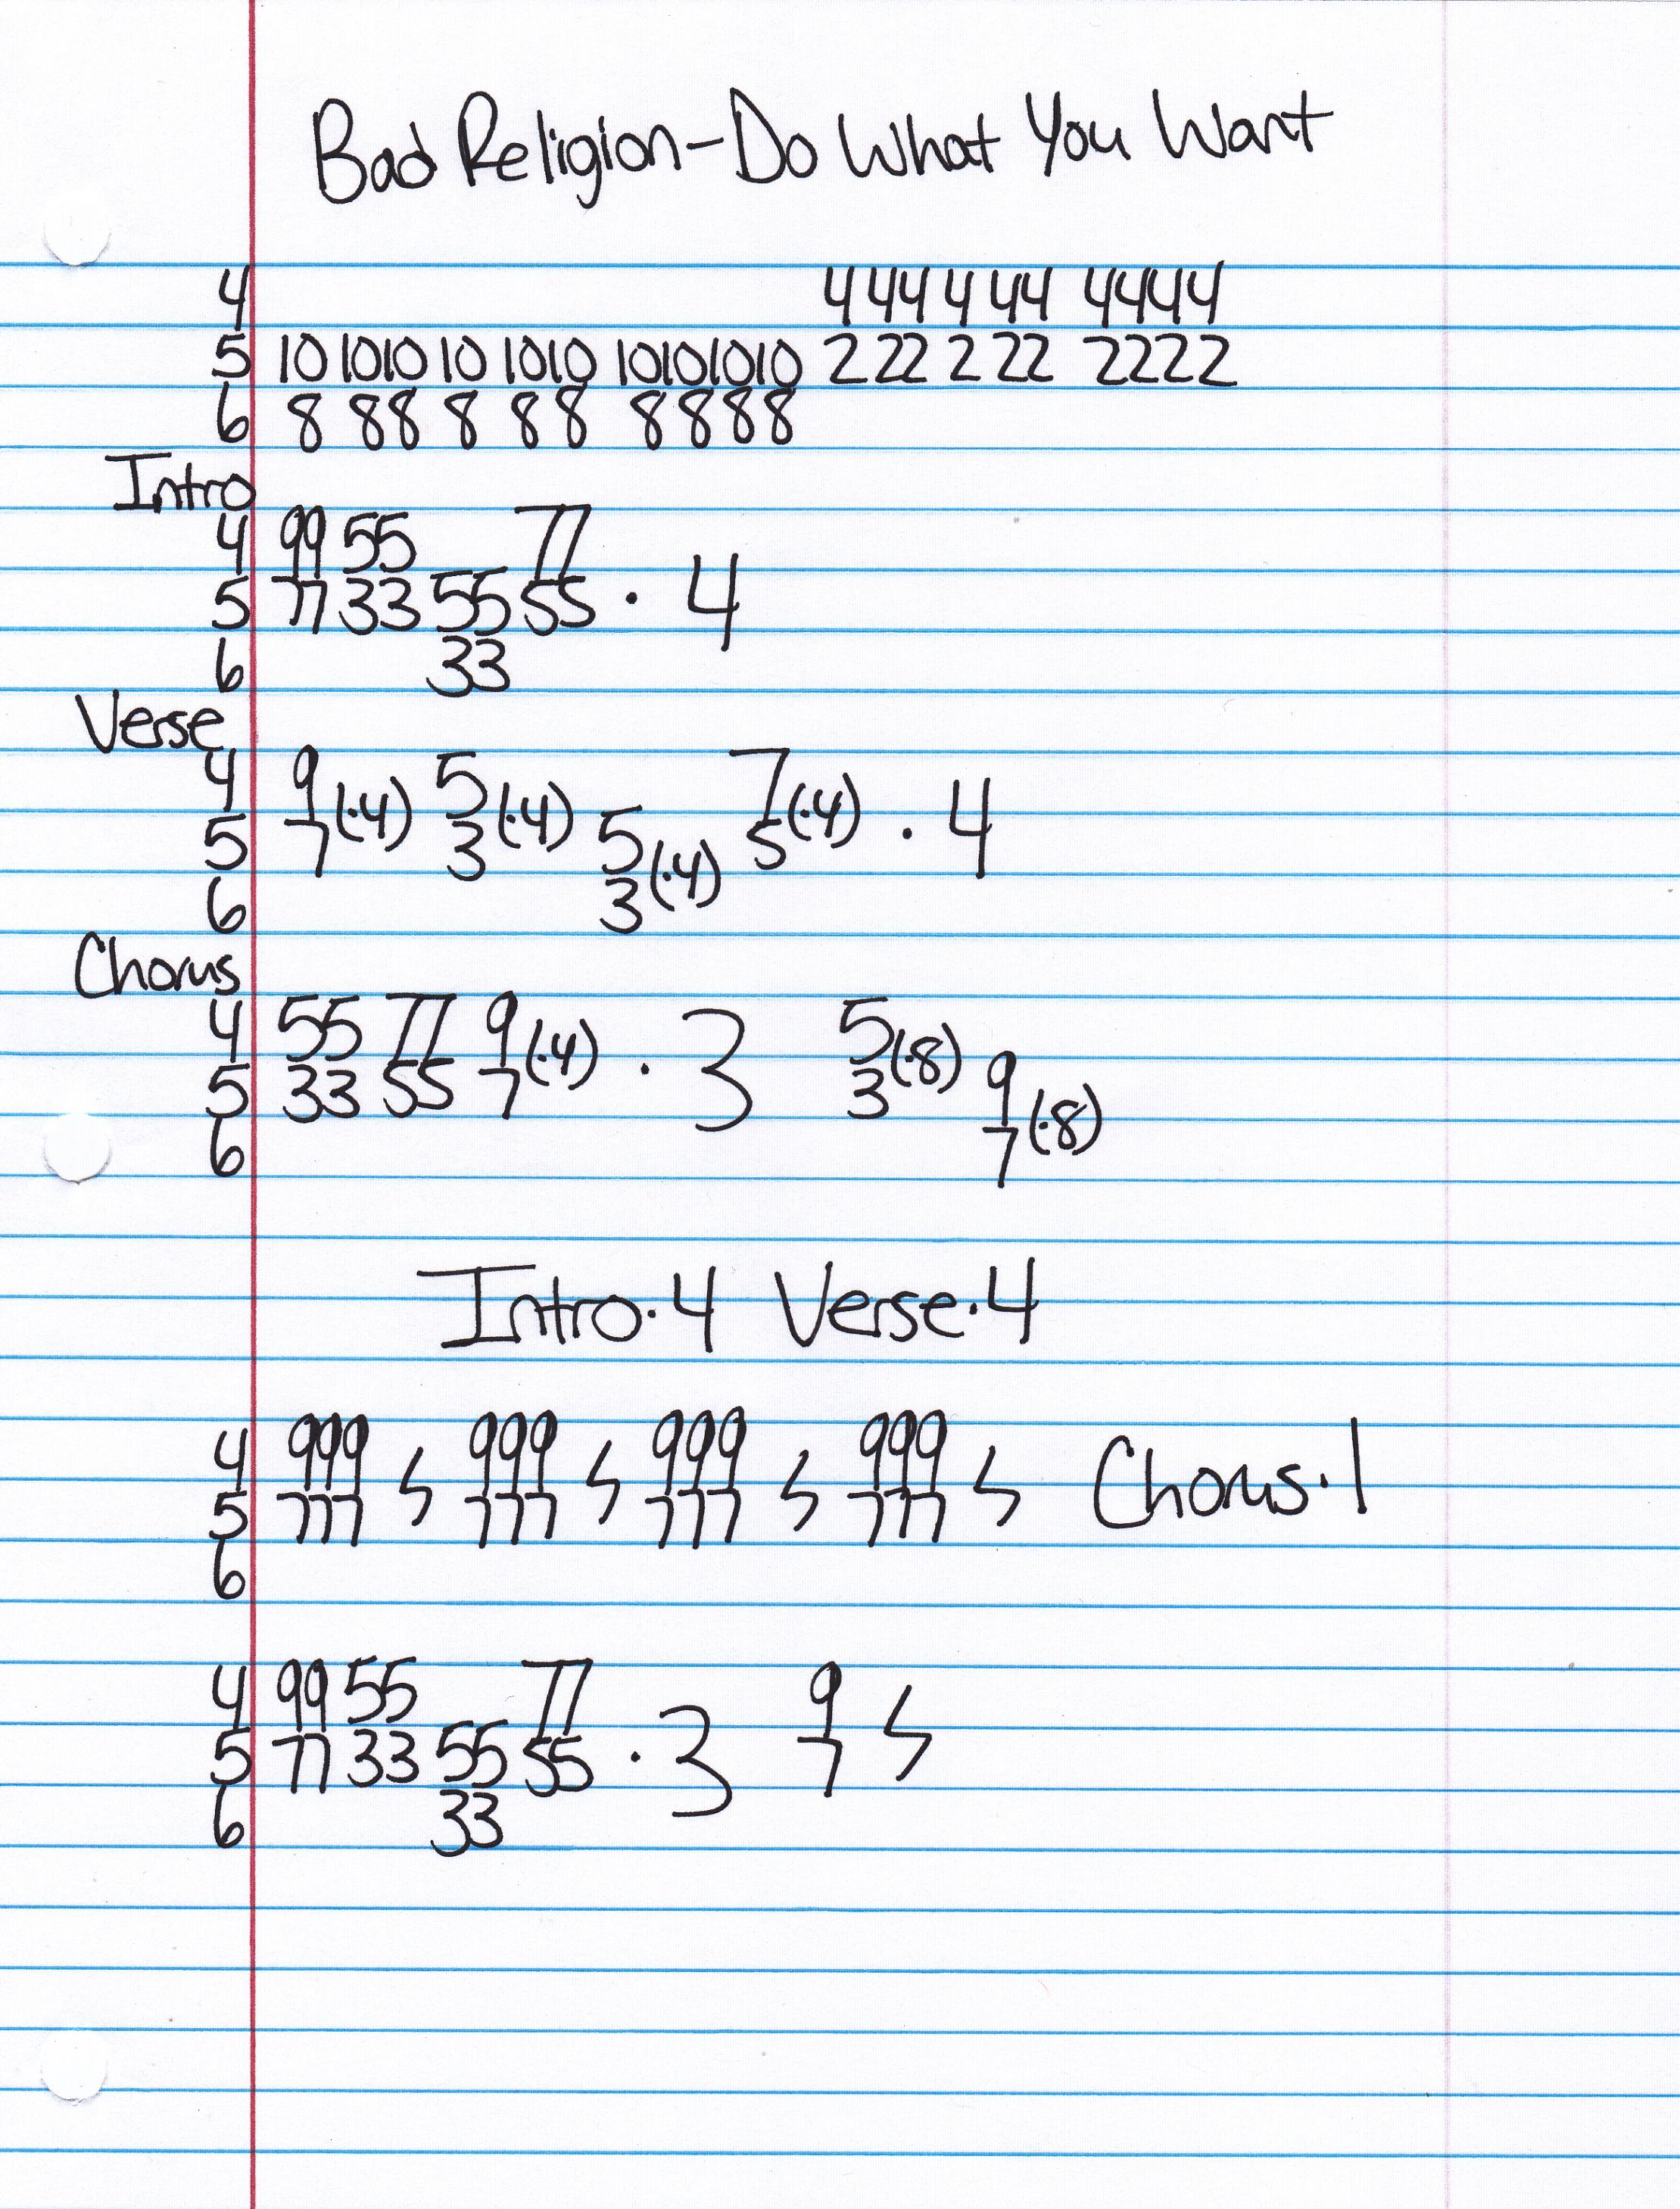 Bad Religion-Do What You Want
4 4 44 4 44 4444
5 10 1010 10 1010 10101010 2 22 2 22 2222
6 8 88 8 88 8888
Intro
4 99 55 77
5 77 33 55 55 · 4
6 33
Verse
4 9 5 7
5 7 (·4) 3 (·4) 5 5 (·4) · 4
6 3 (·4)
Chorus
4 55 77 9 5
5 33 55 7 (·4) · 3 3 (·8) 9
6 7 (·8)
Intro·4 Verse·4
4 999 999 999 999
5 777 𝄽 777 𝄽 777 𝄽 777 𝄽 Chorus·1
6
4 99 55 77 9
5 77 33 55 55 · 3 7 𝄽
6 33